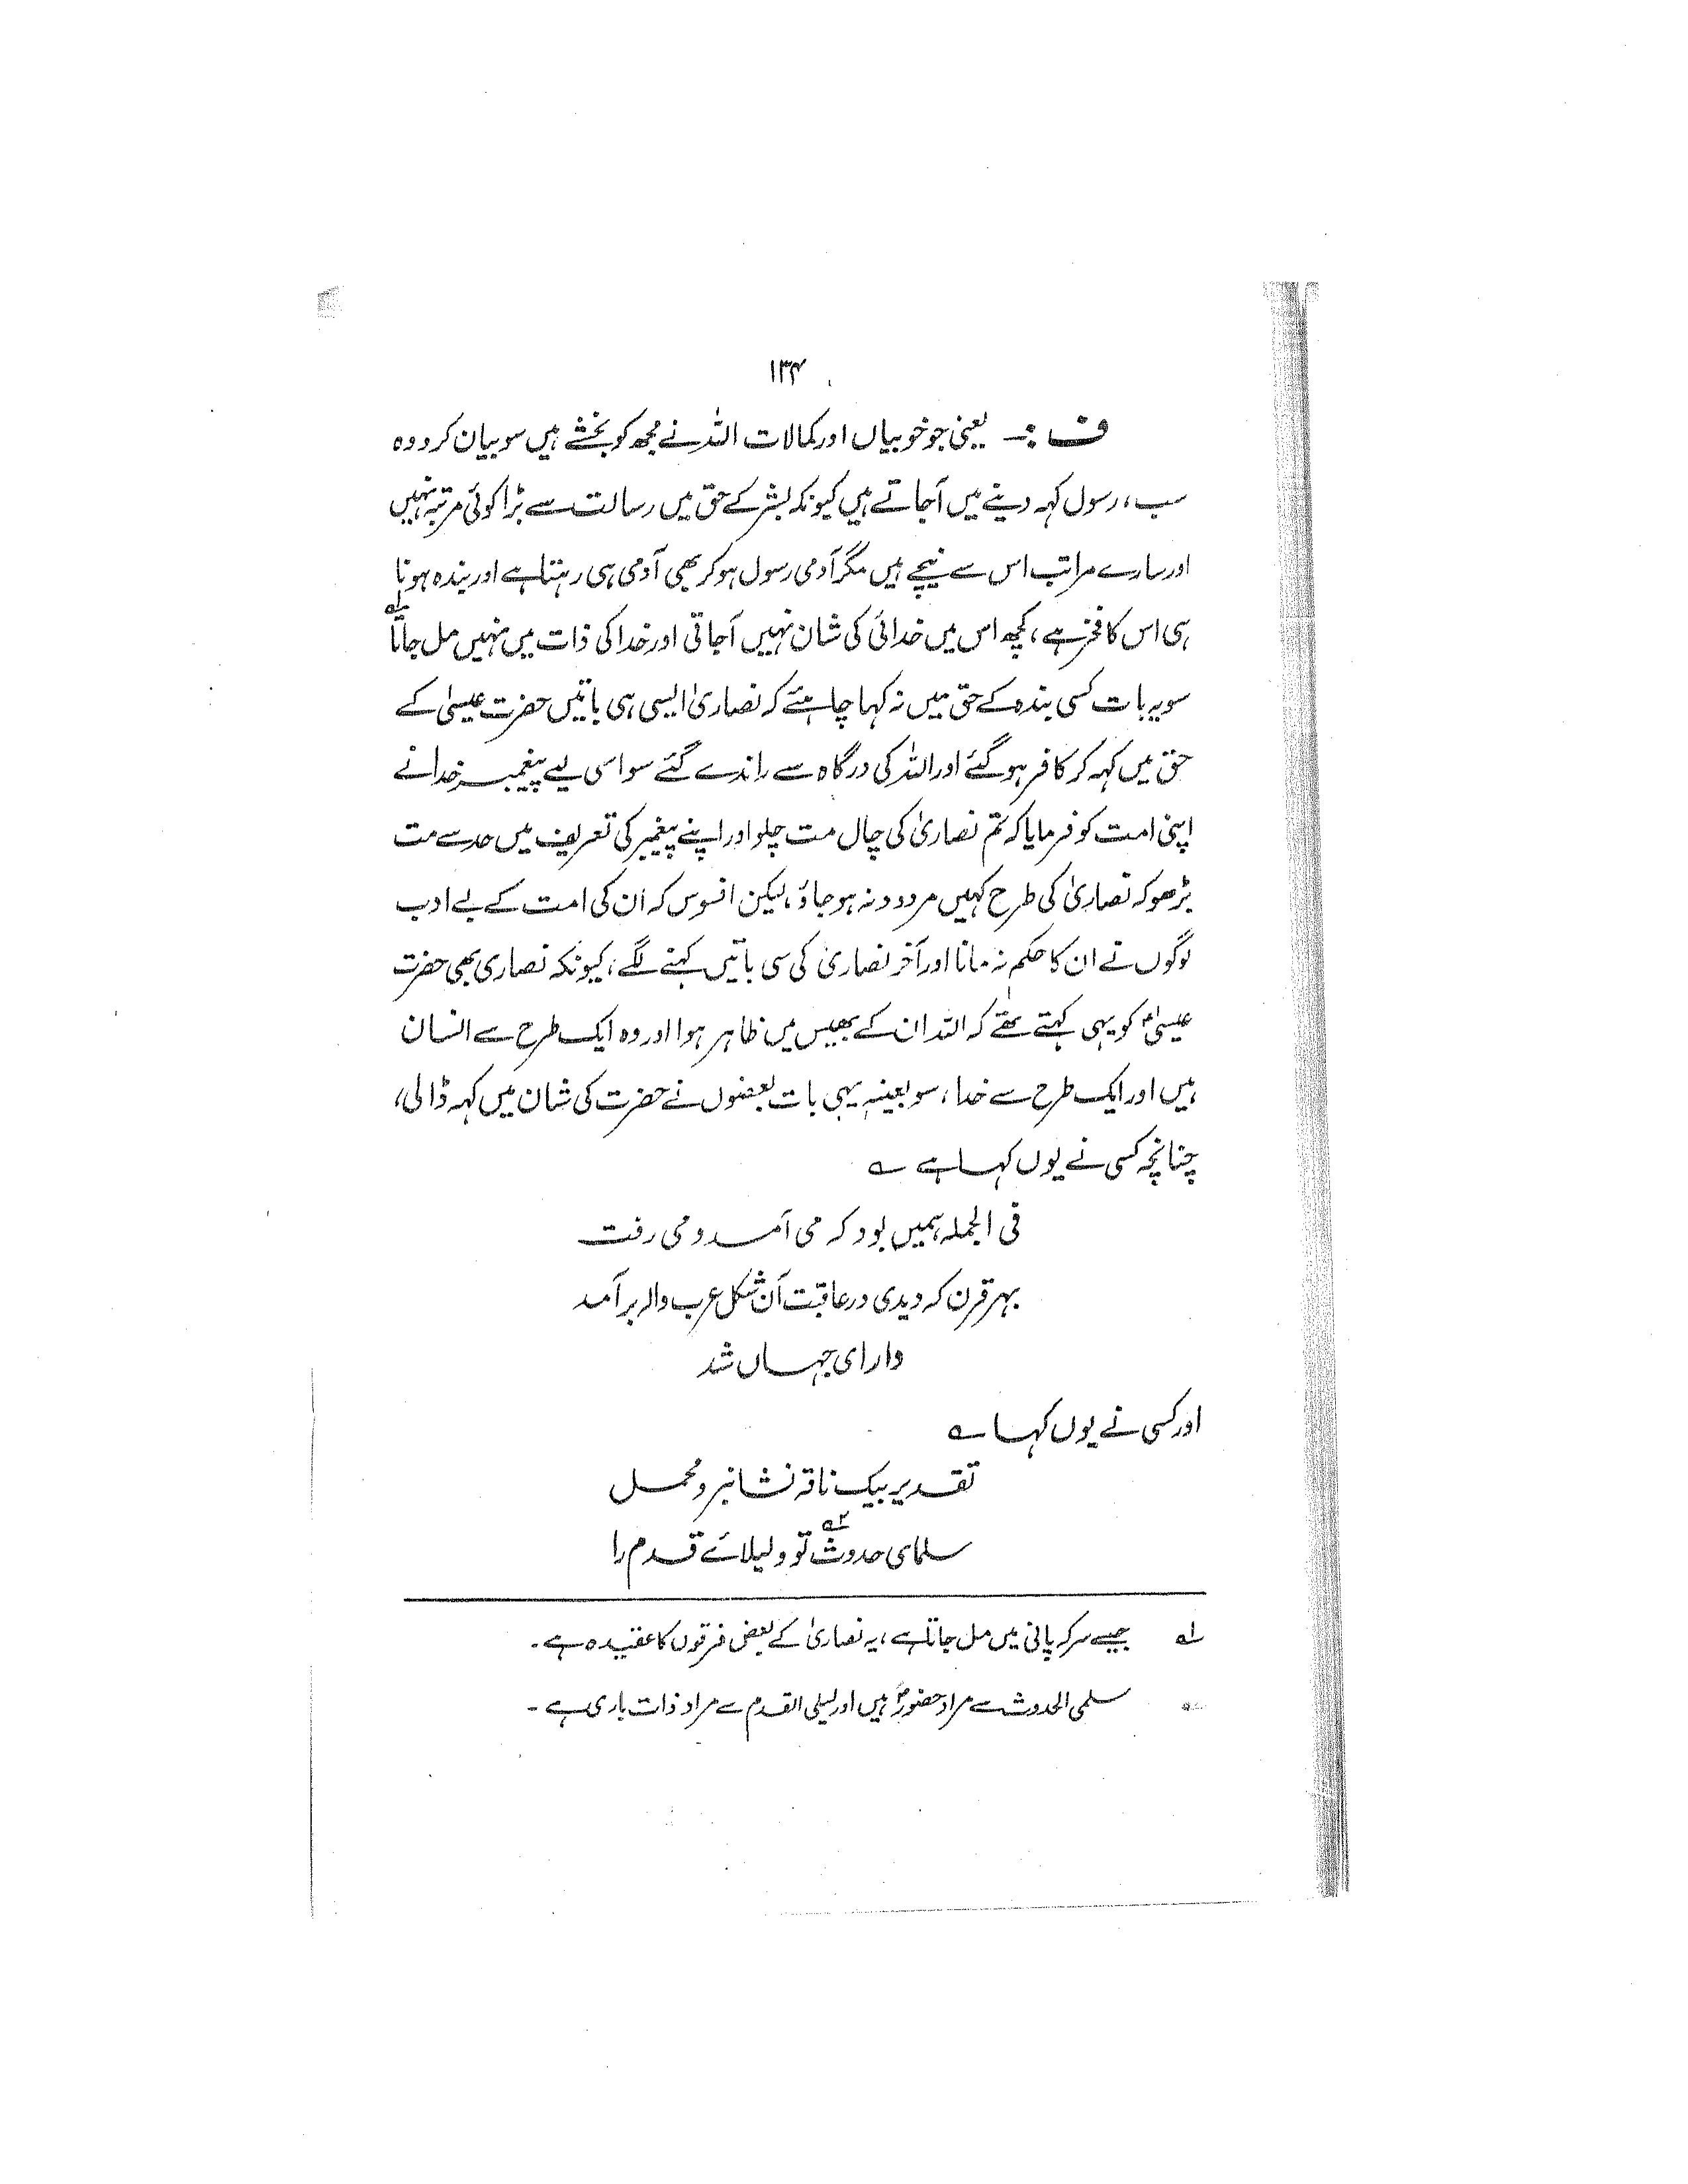 ۱۳۴
ف :۔ یعنی جو خوبیاں اور کمالات اللہ نے مجھ کو بخشے ہیں سو بیان کرو وہ
سب، رسول کہہ دینے میں آجاتے ہیں کیونکہ بشر کے حق میں رسالت سے بڑا کوئی مرتبہ نہیں
اور سارے مراتب اس سے نیچے ہیں مگر آدمی رسول ہو کر بھی آدمی ہی رہتا ہے اور بندہ ہونا
ہی اس کا فخر ہے، کچھ اس میں خدائی کی شان نہیں آجاتی اور خدا کی ذات میں نہیں مل جاتا لہ
سو یہ بات کسی بندہ کے حق میں نہ کہا چاہئے کہ نصاریٰ ایسی ہی باتیں حضرت عیسیٰ کے
حق میں کہہ کر کافر ہو گئے اور اللہ کی درگاہ سے راندے گئے سو اسی لیے پیغمبر خدا نے
اپنی امت کو فرمایا کہ تم نصاریٰ کی چال مت چلو اور اپنے پیغمبر کی تعریف میں حد سے مت
بڑھو کہ نصاریٰ کی طرح کہیں مردود نہ ہو جاؤ، لیکن افسوس کہ ان کی امت کے بے ادب
لوگوں نے ان کا حکم نہ مانا اور آخر نصاریٰ کی سی باتیں کہنے لگے، کیونکہ نصاری بھی حضرت
عیسیٰؑ کو یہی کہتے تھے کہ اللہ ان کے بھیس میں ظاہر ہوا اور وہ ایک طرح سے انسان
ہیں اور ایک طرح سے خدا، سو بعینہٖ یہی بات بعضوں نے حضرت کی شان میں کہہ ڈالی،
چنانچہ کسی نے یوں کہا ہے ؎
فی الجملہ ہمیں بود کہ می آمد و می رفت
بہر قرن کہ دیدی در عاقبت آن شکل عرب والہ بر آمد
دارای جہاں شد
اور کسی نے یوں کہا ؎
تقدیر بیک ناقہ نشانبر و محمل
سلمای حدوث ۲ہ تو و لیلائے قدم را
لہ جیسے سرکہ پانی میں مل جاتا ہے، یہ نصاریٰ کے بعض فرقوں کا عقیدہ ہے۔
سلمی الحدوث سے مراد حضورؐ ہیں اور لیلی القدم سے مراد ذات باری ہے۔